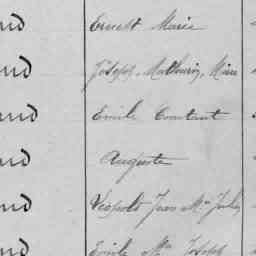 and Ernest Marie
and Joseph Mathurin, Marie
and Emile Constant
and Auguste
and Léopold Jean Mie Jules
and Emile Mie Joseph